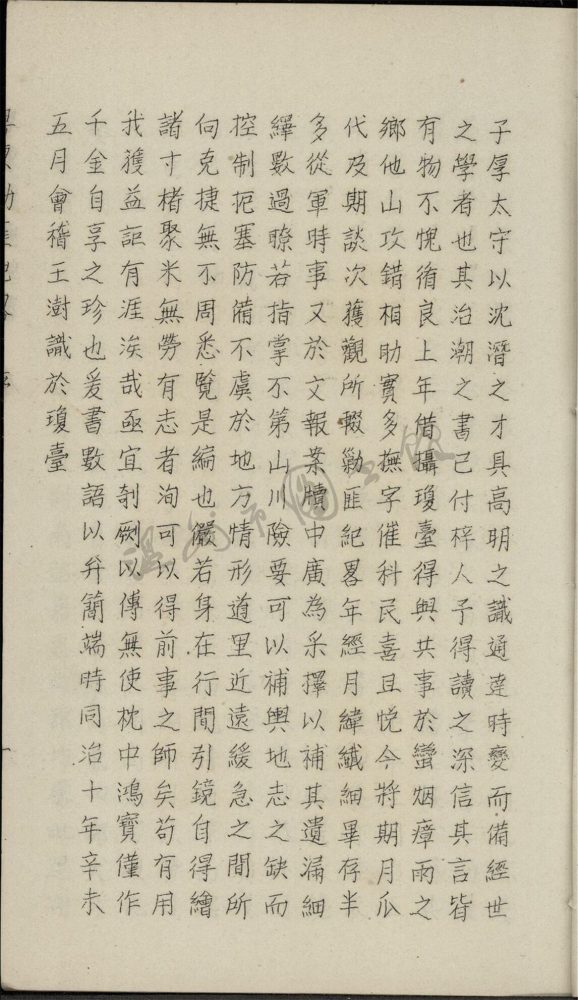 子厚太守以沈潛之才具高明之識通達時變而備經世
之學者也其治潮之書已付梓人予得讀之深信其言皆
有物不愧循良上年借攝瓊臺得與共事於蠻烟瘴雨之
鄉他山攻錯相助實多撫字催科民喜且悅今將期月瓜
代及期談次獲觀所輟勦匪紀畧年經月緯纖細畢存半
多從軍時事又於文報案牘中廣為采擇以補其遺漏細
繹數過瞭若指掌不第山川險要可以補輿地志之缺而
控制扼塞防備不虞於地方情形道里近遠緩急之間所
向克捷無不周悉覽是編也儼若身在行間引鏡自得繪
諸寸楮聚米無勞有志者洵可以得前事之師矣苟有用
我獲益詎有涯涘哉亟宜剞劂以傳無使枕中鴻寶僅作
千金自享之珍也爰書數語以弁簡端時同治十年辛未
五月會稽王澍識於瓊臺
溫州市圖